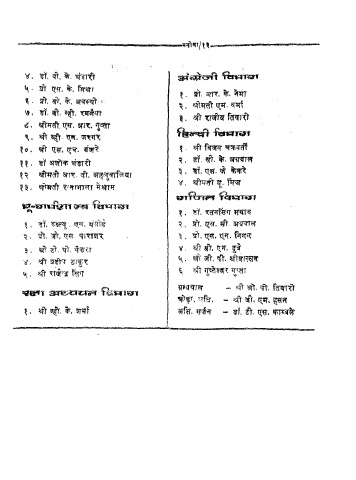 मनीषा/१३
४. डॉ. वी. के. भंडारी
५. प्रो. एस. के. मिश्रा
६. प्रो. के. अवस्थी
७. डॉ. वी. व्ही. रमनैया
८. श्रीमती एस. आर. गुप्ता
९. श्री व्ही. एन. जरगर
१०. श्री एस. एच. बंजारे
११. डॉ अशोक भंडारी
१२. श्रीमती आर. वी. अहलुवालिया
१३. श्रीमती मेश्राम
भू-गर्भशास्त्र विभाग
१. डॉ. एस. धारोडे
२. प्रो. जी. एस. पाराशर
३. श्री टी. पी. पेंकरा
४. श्री प्रदीप ठाकुर
५. श्री राजेन्द्र सिंग
रक्षा अध्ययन विभाग
१. श्री व्ही. के. शर्मा
अंग्रेजी विभाग
१. प्रो. आर. के. नेमा
२. श्रीमती एम. वर्मा
३. श्री राजीव तिवारी
हिन्दी विभाग
१. श्री विजय चक्रवर्ती
२. डॉ. सी. के. अग्रवाल
३. डॉ. एस. जे. केकरे
४. श्रीमती यू. मिज
गणित विभाग
१. डॉ. रतनसिंग भयाल
२. प्रो. एस. सी. अग्रवाल
३. प्रो. एस. एन. निगम
४. श्री बी. एन. दुबे
५. श्री जी. पी. श्रीवास्तव
६. श्री गुप्तेश्वर गुप्ता
ग्रंथपाल – श्री जी. पी. तिवारी
क्रीड़ा. अधि. – श्री जी. एम. हसन
असि. सर्जन – डॉ. टी. एस. काम्बले